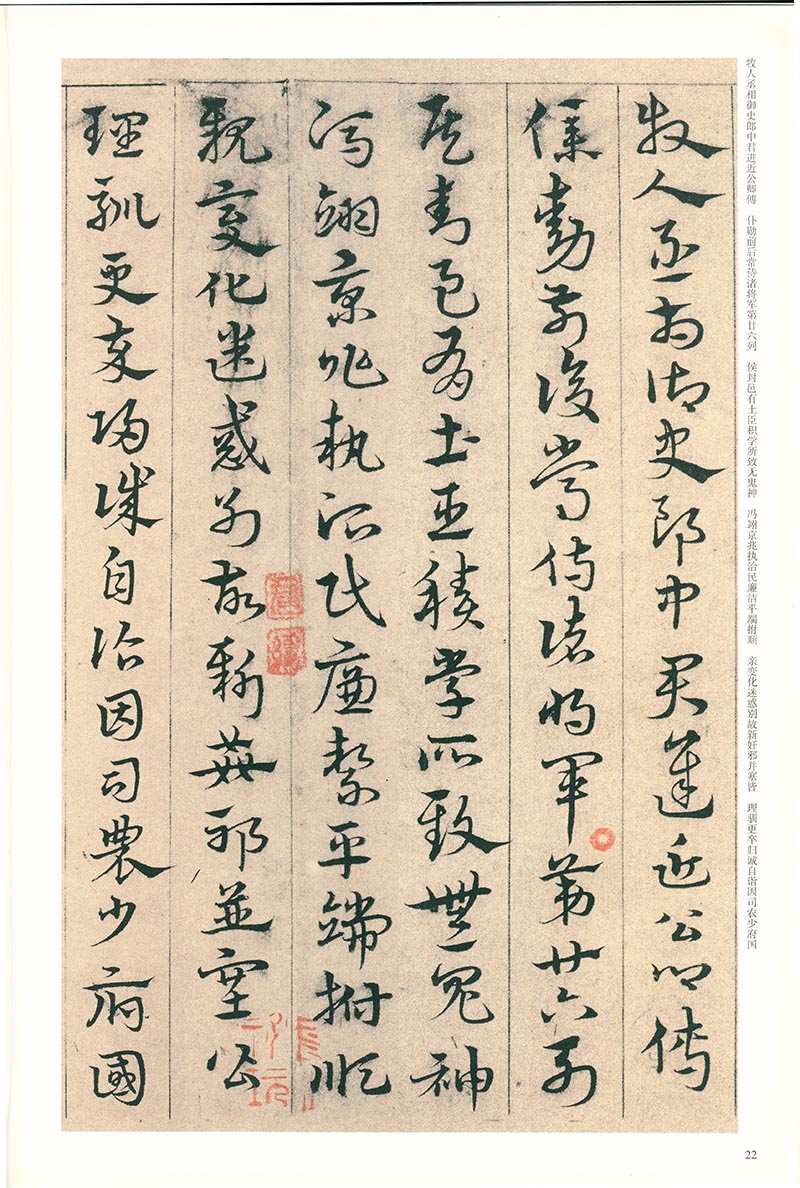 牧人丞相御史郎中君进近公卿傅　仆勋前后常侍诸将军第廿六列　侯封邑有土臣积学所致无鬼神　冯翊京兆执治民廉洁平端拊顺　亲变化迷惑别故新奸邪并塞皆　理驯更卒归诚自诣因司农少府国
牧人丞相御史郎中君進近公卿傅
僕勳前後常侍諸將軍第廿六列
侯封邑有土臣積學所致無鬼神
馮翊京兆執治民廉絜平端拊順
親變化迷惑別故新姦邪並塞皆
理馴更卒歸誠自詣因司農少府國
22